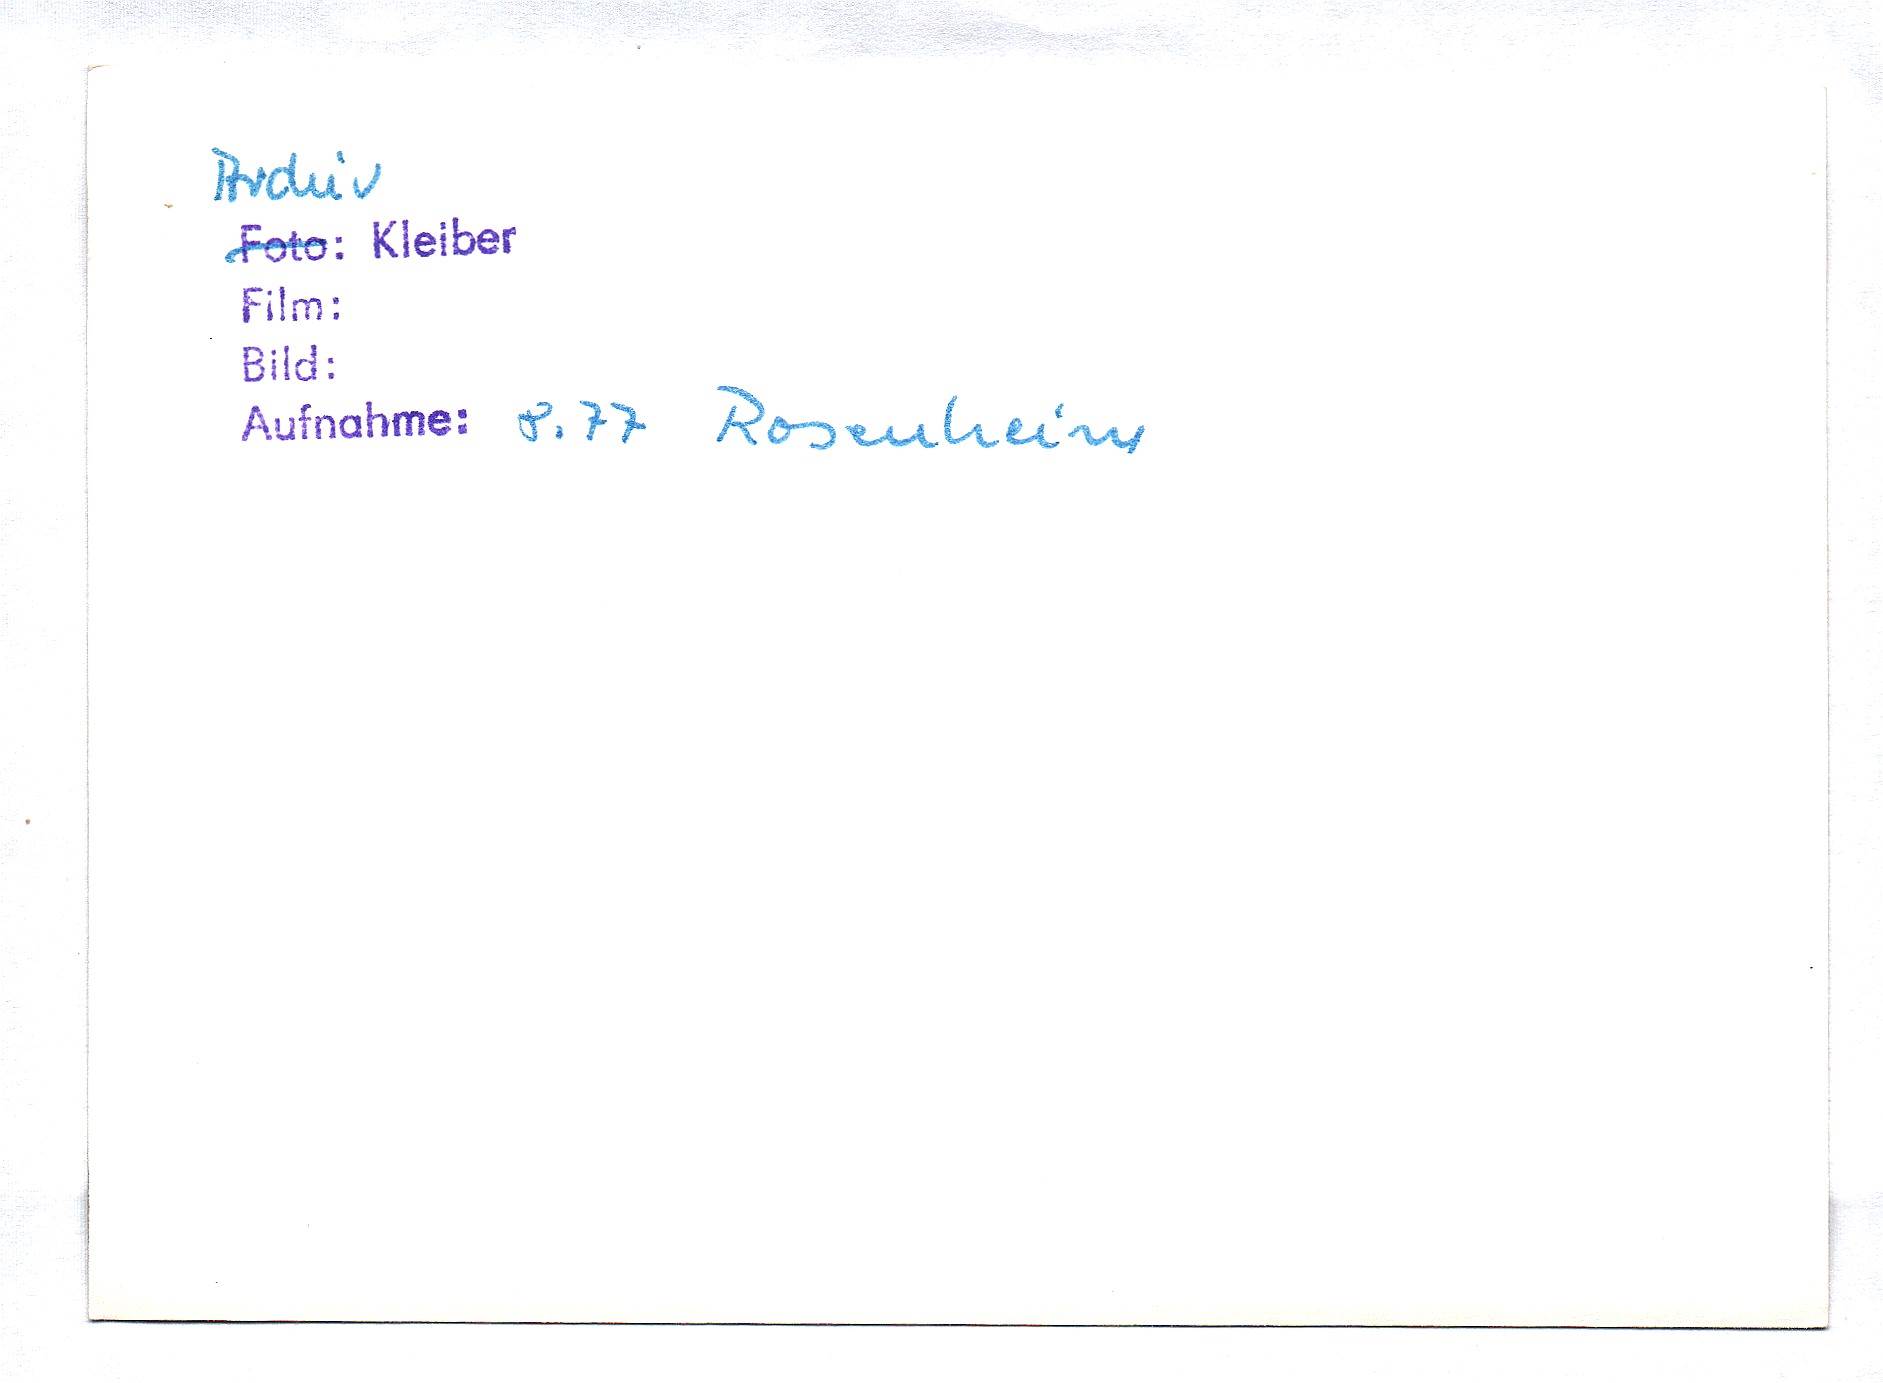 Archiv
Foto: Kleiber
Film:
Bild:
Aufnahme: 8.77 Rosenheim